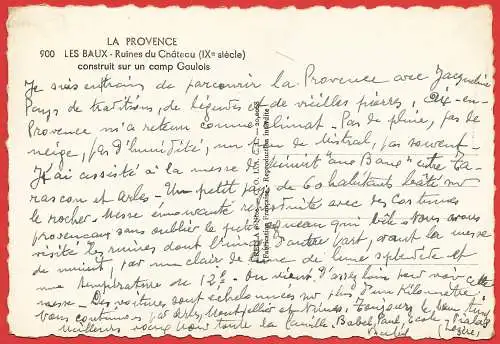 LA PROVENCE
900 LES BAUX - Ruines du Château (IXe siècle)
construit sur un camp Gaulois
Je suis entrain de parcourir la Provence avec Jacqueline
Pays de traditions, de légendes et de vieilles pierres, Aix-en-
Provence m'a retenu comme climat. Pas de pluie, pas de
neige, pas d'humidité, un peu de Mistral, pas souvent.
J'ai assisté à la messe de minuit "aux Baux" entre Ta-
rascon et Arles. Un petit pays de 60 habitants bâti sur
le rocher. Messe émouvante avec des costumes
provençaux sans oublier le petit agneau qui bêle. Nous avons
visité les ruines dont l'image d'autre part, avant la messe
de minuit, par un clair de lune splendide et
une température de 12°. On vient d'assez loin pour voir cette
messe. Des voitures sont échelonnées sur plus d'un Kilomètre
nous continuons par Arles, Montpellier et Nîmes. Toujours le beau
meilleurs vœux pour toute la famille.